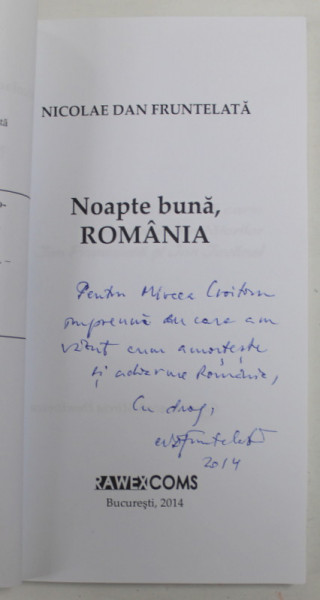 NICOLAE DAN FRUNTELATĂ
Noapte bună,
ROMÂNIA
Pentru Mircea Croitoru
împreună cu care am
văzut cum amorțește
și adoarme România,
Cu drag,
NDFruntelată
2014
RAWEXCOMS
București, 2014